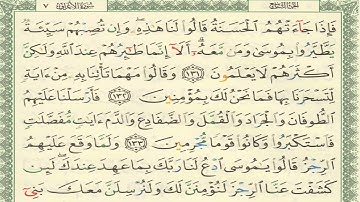 الجزء التاسع سورة الأعراف ٧
فَإِذَا جَآءَتْهُمُ ٱلْحَسَنَةُ قَالُوا۟ لَنَا هَـٰذِهِۦ ۖ وَإِن تُصِبْهُمْ سَيِّئَةٌ
يَطَّيَّرُوا۟ بِمُوسَىٰ وَمَن مَّعَهُۥٓ ۗ أَلَآ إِنَّمَا طَـٰٓئِرُهُمْ عِندَ ٱللَّهِ وَلَـٰكِنَّ
أَكْثَرَهُمْ لَا يَعْلَمُونَ ١٣١ وَقَالُوا۟ مَهْمَا تَأْتِنَا بِهِۦ مِنْ ءَايَةٍ
لِّتَسْحَرَنَا بِهَا فَمَا نَحْنُ لَكَ بِمُؤْمِنِينَ ١٣٢ فَأَرْسَلْنَا عَلَيْهِمُ
ٱلطُّوفَانَ وَٱلْجَرَادَ وَٱلْقُمَّلَ وَٱلضَّفَادِعَ وَٱلدَّمَ ءَايَـٰتٍ مُّفَصَّلَـٰتٍ
فَٱسْتَكْبَرُوا۟ وَكَانُوا۟ قَوْمًا مُّجْرِمِينَ ١٣٣ وَلَمَّا وَقَعَ عَلَيْهِمُ
ٱلرِّجْزُ قَالُوا۟ يَـٰمُوسَى ٱدْعُ لَنَا رَبَّكَ بِمَا عَهِدَ عِندَكَ ۖ لَئِن
كَشَفْتَ عَنَّا ٱلرِّجْزَ لَنُؤْمِنَنَّ لَكَ وَلَنُرْسِلَنَّ مَعَكَ بَنِىٓ